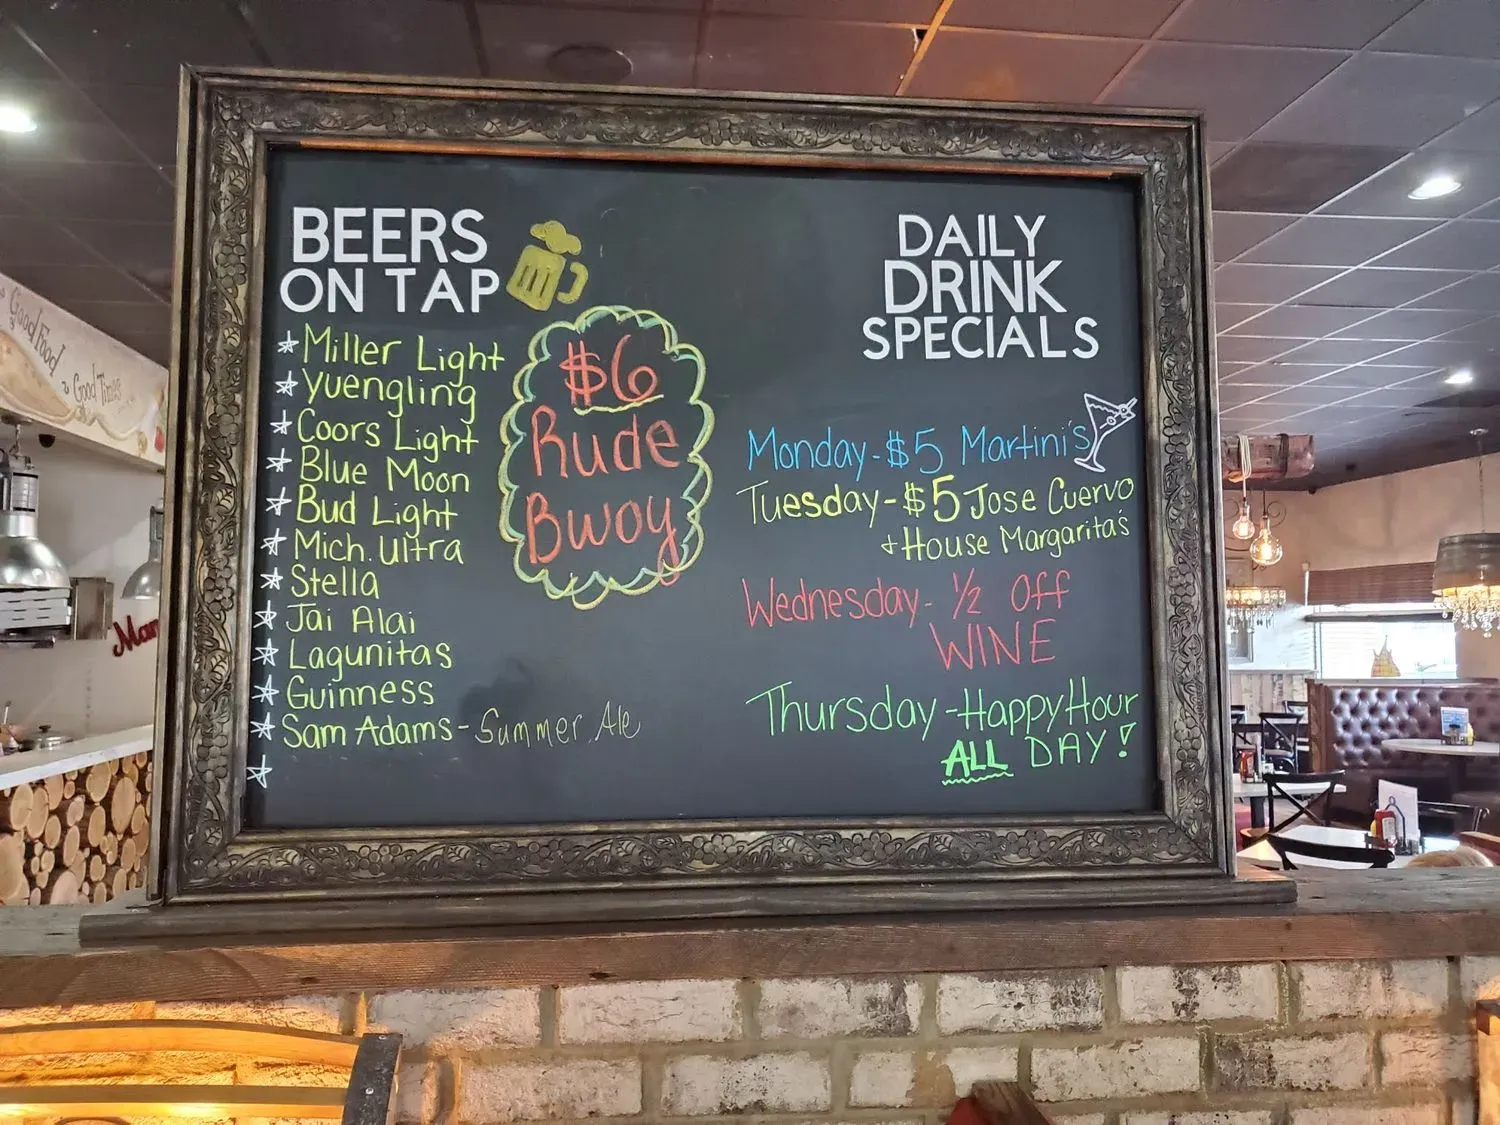 BEERS
ON TAP
Miller Light
Yuengling
Coors Light
Blue Moon
Bud Light
Mich. Ultra
Stella
Jai Alai
Lagunitas
Guinness
Sam Adams - Summer Ale
$6
Rude
Bwoy
DAILY
DRINK
SPECIALS
Monday - $5 Martini's
Tuesday - $5 Jose Cuervo
+ House Margarita's
Wednesday - ½ Off
WINE
Thursday - Happy Hour
ALL DAY!
Good Food
Good Times
Mar